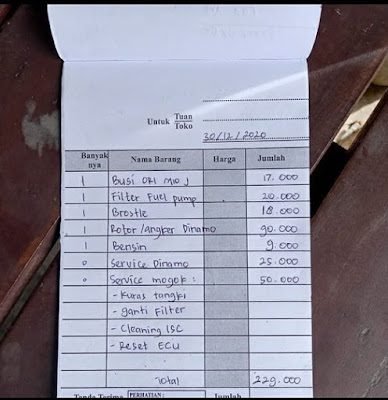 Untuk Tuan
Toko
30/12/2020
Banyak nya Nama Barang Harga Jumlah
1 Busi ORI Mio J 17.000
1 Filter Fuel pump 20.000
1 Brostle 18.000
1 Rotor/angker Dinamo 90.000
1 Bensin 9.000
0 Service Dinamo 25.000
0 Service mogok : 50.000
- Kuras tangki
- ganti Filter
- Cleaning ISC
- Reset ECU
Total 229.000
Tanda Terima PERHATIAN : Jumlah